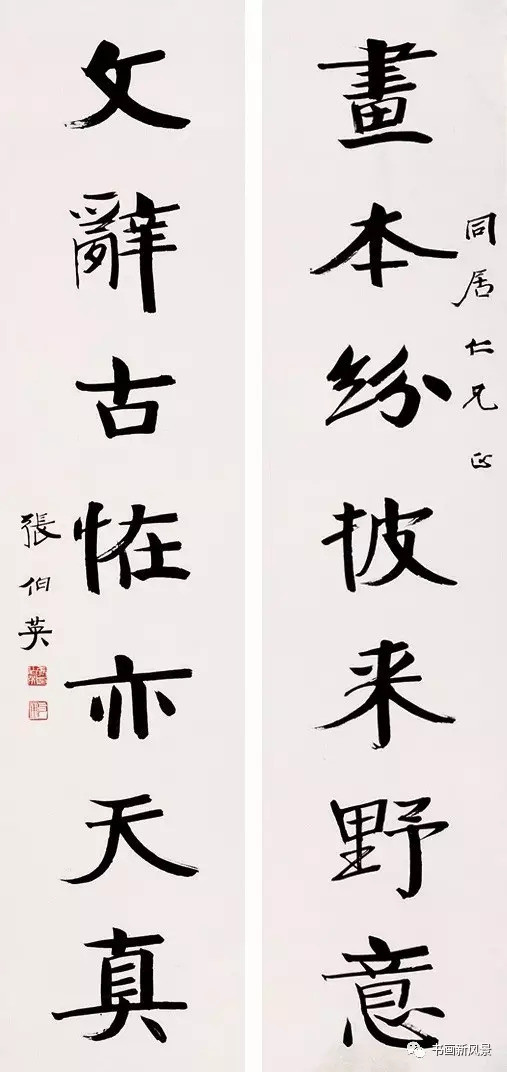 畫本紛披来野意
同居仁兄正
文辭古恠亦天真
張伯英
书画新风景